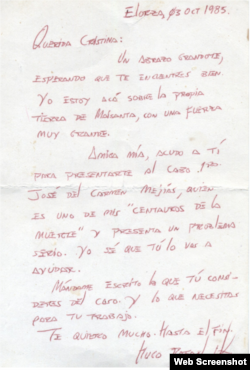 Elorza, 03 OCT 1985.
Querida Cristina:
Un abrazo grande,
esperando que te encuentres bien
Yo estoy acá sobre la propia
tierra de Maisanta, con una fuerza
muy grande.
Amiga mía, acudo a tí
para presentarte al Cabo 1ro
José del Carmen Mejías, quien
es uno de mis "Centauros de la
muerte" y presenta un problema
serio. Yo sé que tú lo vas a
ayudar.
Mándame escrito lo que tú consi-
deres del caso. Y lo que necesites
para tu trabajo.
Te quiero mucho. Hasta el fin.
Hugo
Web Screenshot